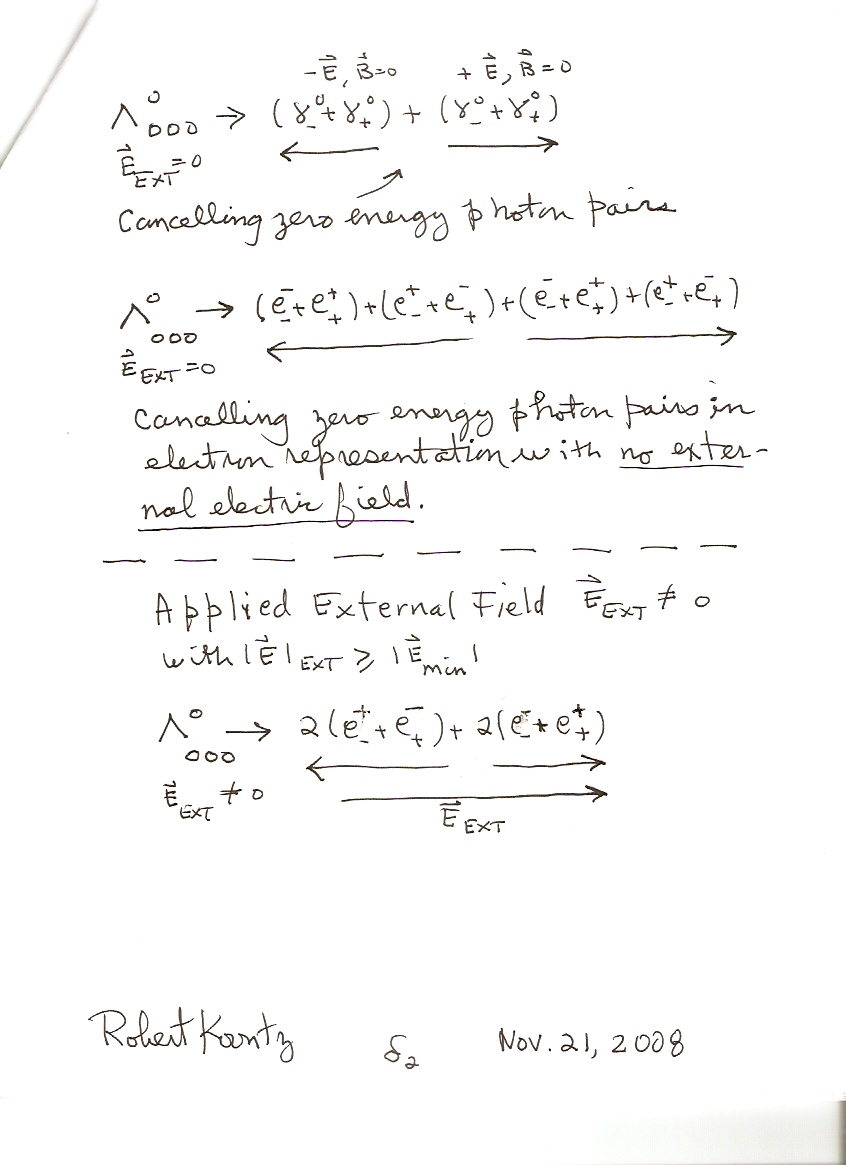 -E⃗, B⃗=0 +E⃗, B⃗=0
Λ⁰₀₀₀ → (γ₋⁰+γ₊⁰) + (γ₋⁰+γ₊⁰)
E⃗_EXT=0
Cancelling zero energy photon pairs
Λ⁰₀₀₀ → (e₋⁻+e₊⁺)+(e₋⁺+e₊⁻)+(e₋⁻+e₊⁺)+(e₋⁺+e₊⁻)
E⃗_EXT=0
Cancelling zero energy photon pairs in
electron representation with no exter-
nal electric field.
Applied External Field E⃗_EXT ≠ 0
with |E⃗|_EXT ⩾ |E⃗_min|
Λ⁰₀₀₀ → 2(e₋⁺+e₊⁻)+2(e₋⁻+e₊⁺)
E⃗_EXT ≠ 0
E⃗_EXT
Robert Kantz δ₂ Nov. 21, 2008